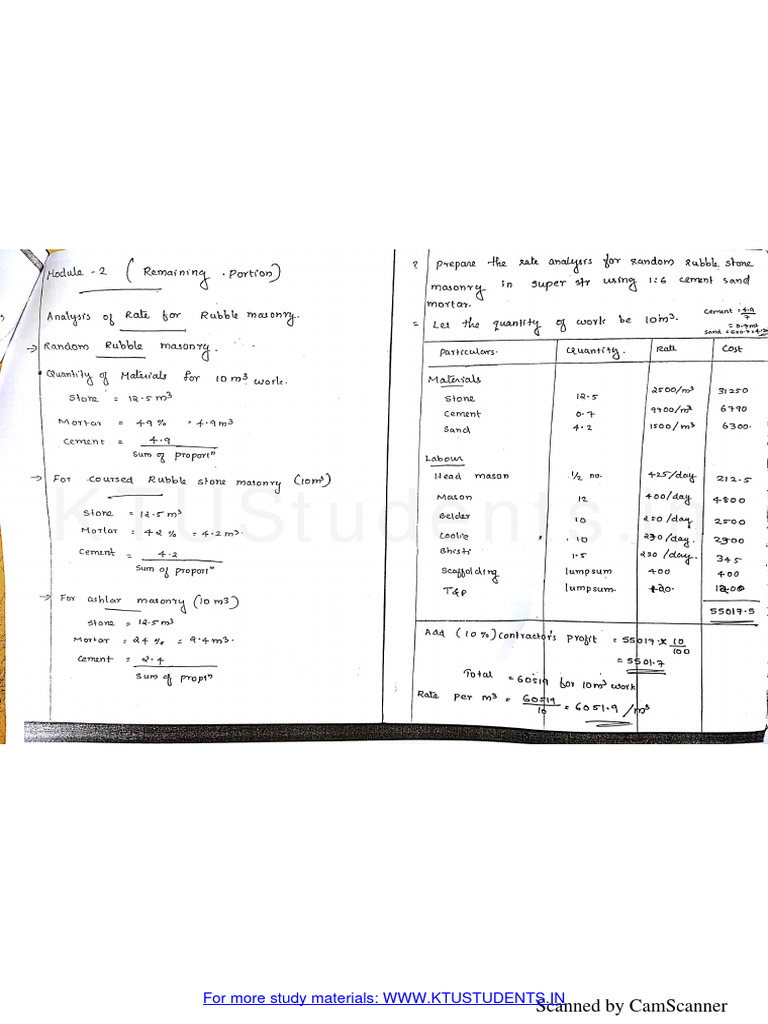 Module - 2 ( Remaining Portion)
Analysis of Rate for Rubble masonry.
→ Random Rubble masonry.
• Quantity of Materials for 10 m3 work.
Stone = 12.5 m3
Mortar = 49 % = 4.9 m3
Cement = 4.9
Sum of proportn
→ For coursed Rubble stone masonry (10m3)
Stone = 12.5 m3
Mortar = 42 % = 4.2 m3.
Cement = 4.2
Sum of proportn
→ For ashlar masonry (10 m3)
Stone = 12.5 m3
Mortar = 24 % = 2.4 m3.
Cement = 2.4
Sum of proptn
? Prepare the rate analysis for Random Rubble stone
masonry in super str using 1:6 cement sand
mortar.
Cement = 4.9
7
= 0.7m3
= Let the quantity of work be 10m3.
Particulars. Quantity. Rate Cost
Materials
Stone 12.5 2500/m3 31250
Cement 0.7 9700/m3 6790
Sand 4.2 1500/m3 6300.
Labour
Head mason 1/2 no. 425/day 212.5
Mason 12 400/day 4800
Belder 10 250/day 2500
Coolie 10 230/day. 2300
Bhisti 1.5 230/day. 345
Scaffolding lumpsum 400 400
T&P lumpsum 120.
55017.5
Add (10%) contractor's profit = 55017 x 10
100
= 5501.7
Total = 60519 for 10m3 work
Rate per m3 = 60519
10
= 6051.9 /m3
KTUStudents.in
For more study materials: WWW.KTUSTUDENTS.IN
Scanned by CamScanner